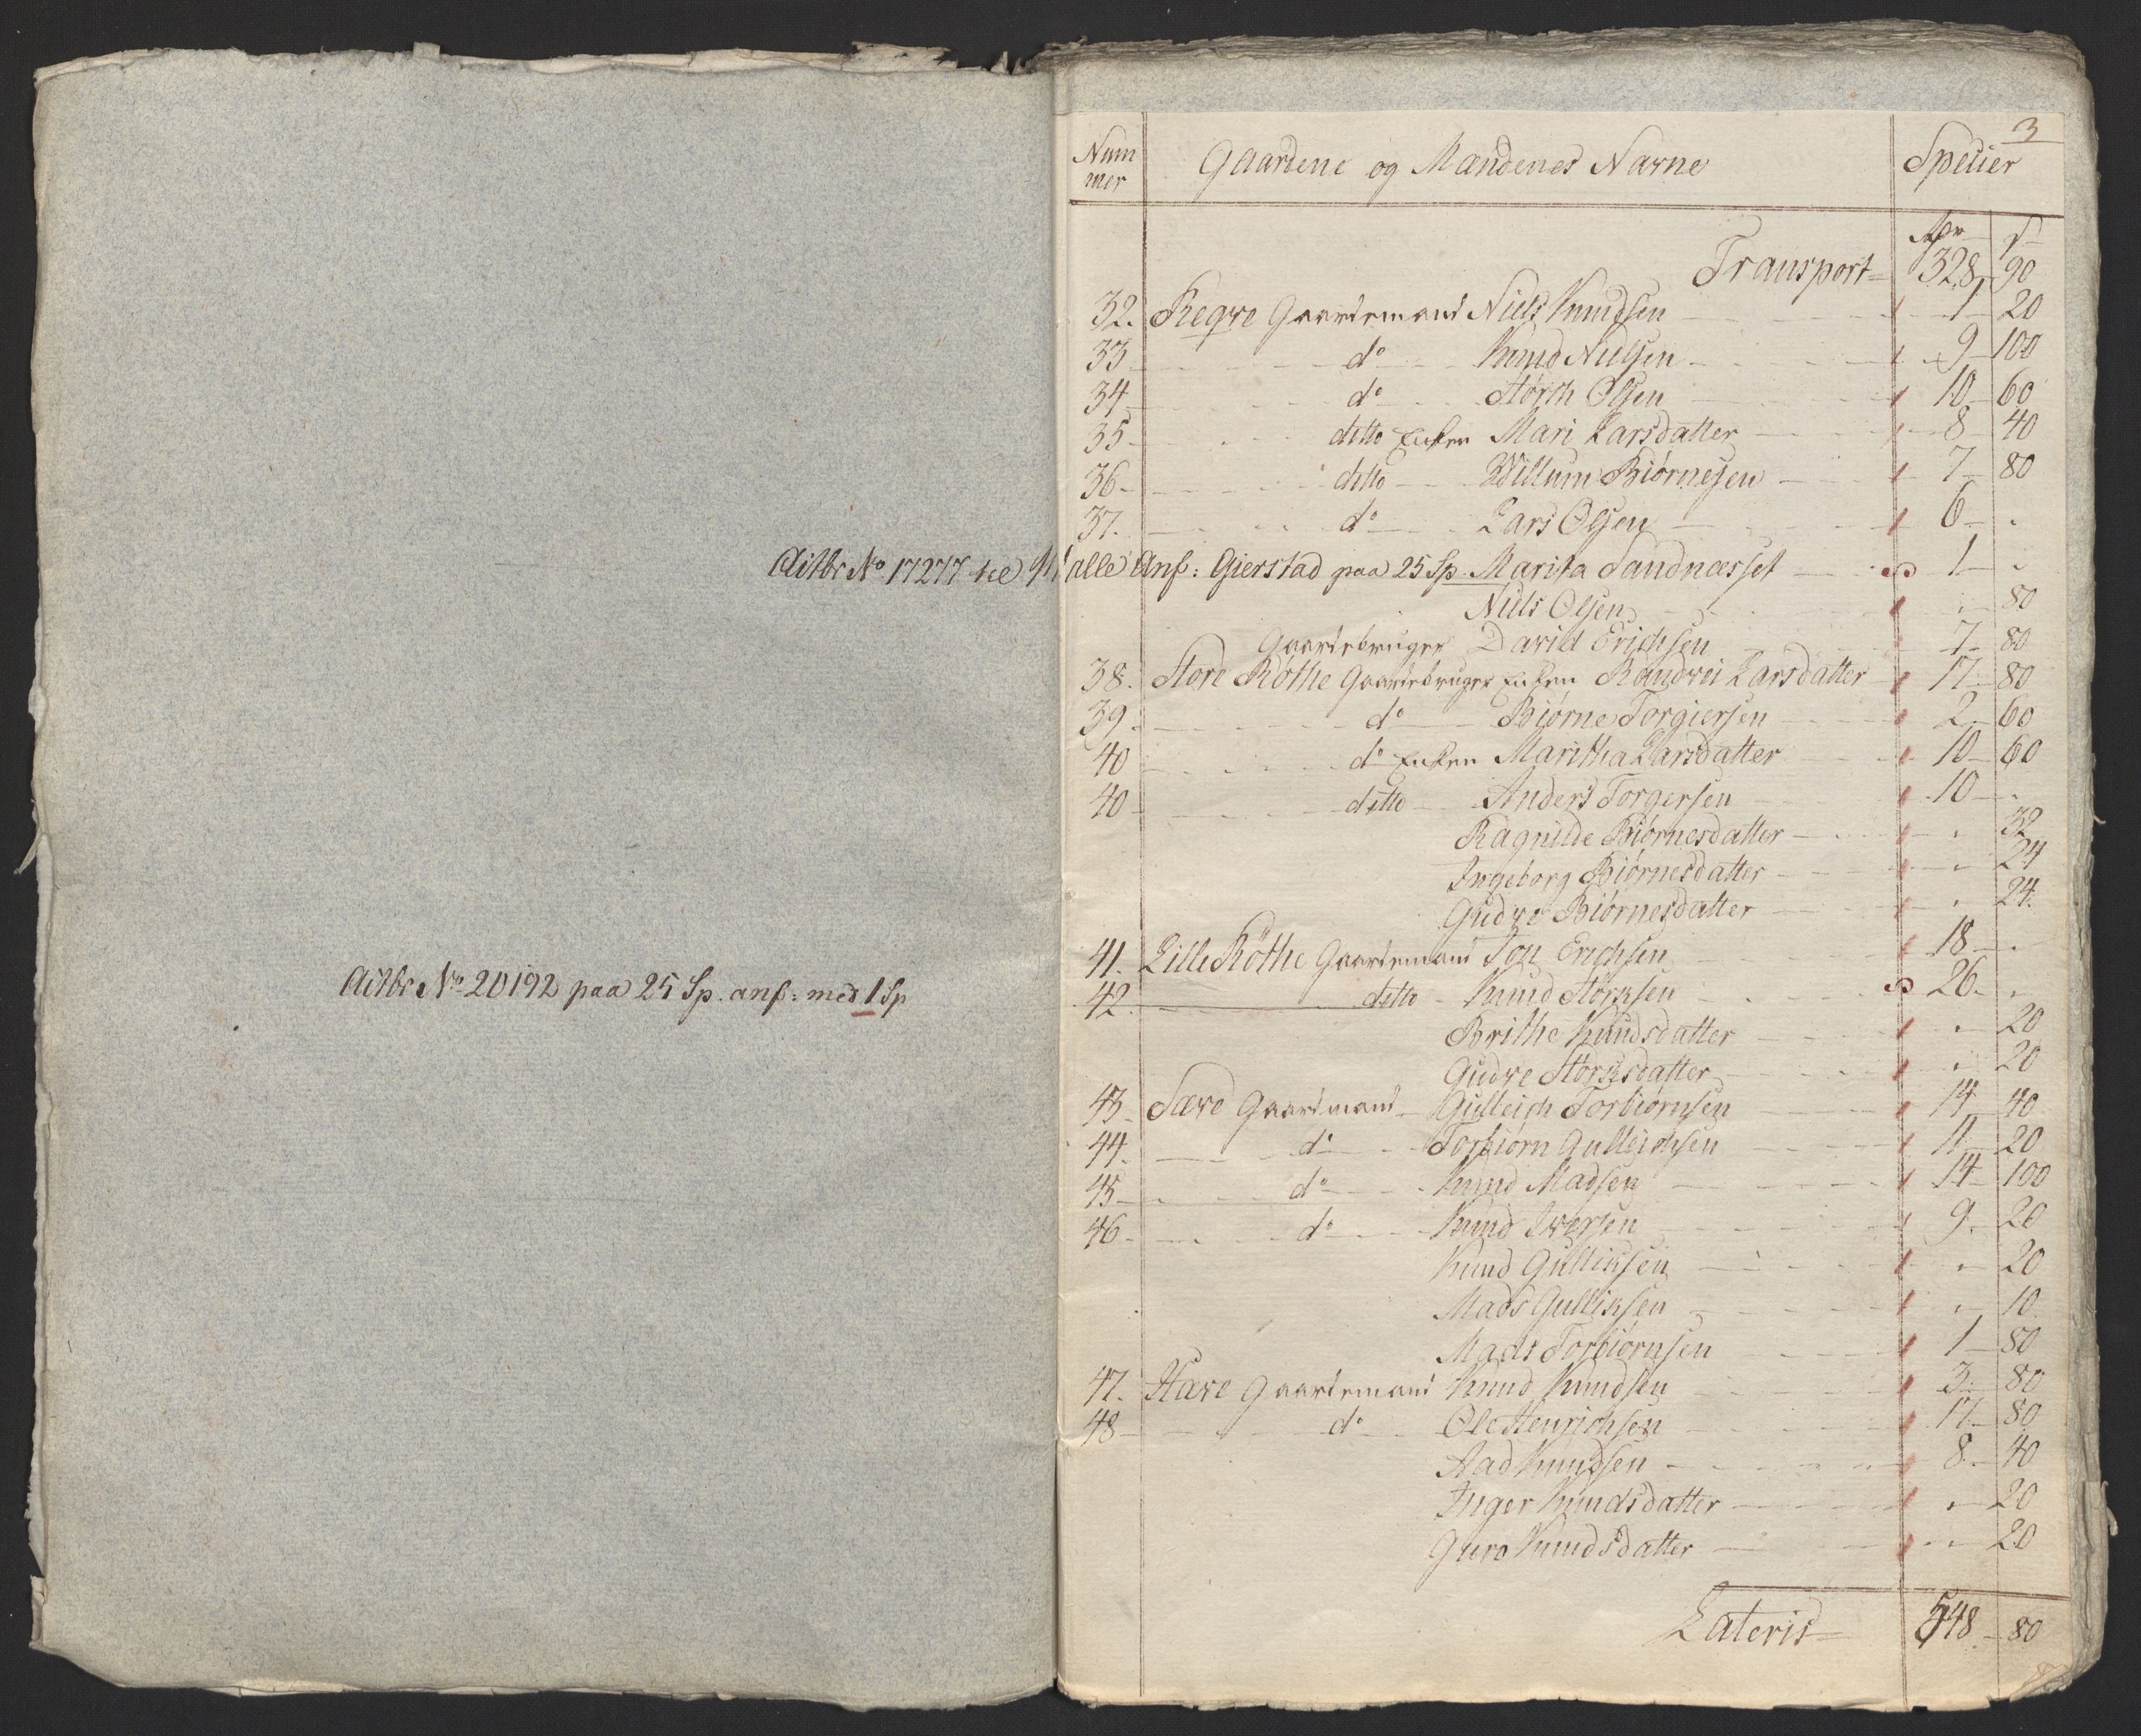 Actbr No 17277 til alle Anf: Gierstad paa 25 Sp.
Actbr No 20192 paa 25 Sp. anf: med 1 Sp
3
Num mer Gaardene og Mændenes Navne Specier
Spr ß
Transport 328 90
32. Reqve Gaardemand Niels Knudsen 1 20
33 do Knud Nielsen 9 100
34 do Størch Olsen 10 60
35 ditto Enken Mari Larsdatter 8 40
36 ditto Willum Biørnesen 7 80
37. do Lars Olsen 6 .
Marita Sandnæsset 1 .
Niels Olsen . 80
Gaardebruger David Erichsen 7 80
38. Store Røthe Gaardebruger Enken Randvei Larsdatter 17 80
39. do Biørne Torgiersen 2 60
40 do Enken Maritha Larsdatter 10 60
40 ditto Anders Torgersen 10 .
Ragnilde Biørnesdatter . 32
Ingeborg Biørnesdatter . 24
Gudve Biørnesdatter . 24.
41. Lille Röthe Gaardemand Erichsen 18 .
42. ditto Knud Størksen 26. .
Brithe Knudsdatter . 20
Gudve Størksdatter . 20
43 Sæve Gaardmand Gulleich Torbiørnsen 14 40
44. do Torbiørn Gulleichsen 11 20
45 do Knud Madsen 14 100
46 do Knud Iversen 9. 20
Knud Gulliksen . 20
Mads Gulliksen . 10
Mads Torbiørnsen 1 80
47. Hæve Gaardemand Knud Knudsen 3 80
48 do Ole Henrichsen 17 80
Aad Knudsen 8 40
Inger Knudsdatter . 20
Guro Knudsdatter . 20
Lateris 548 80